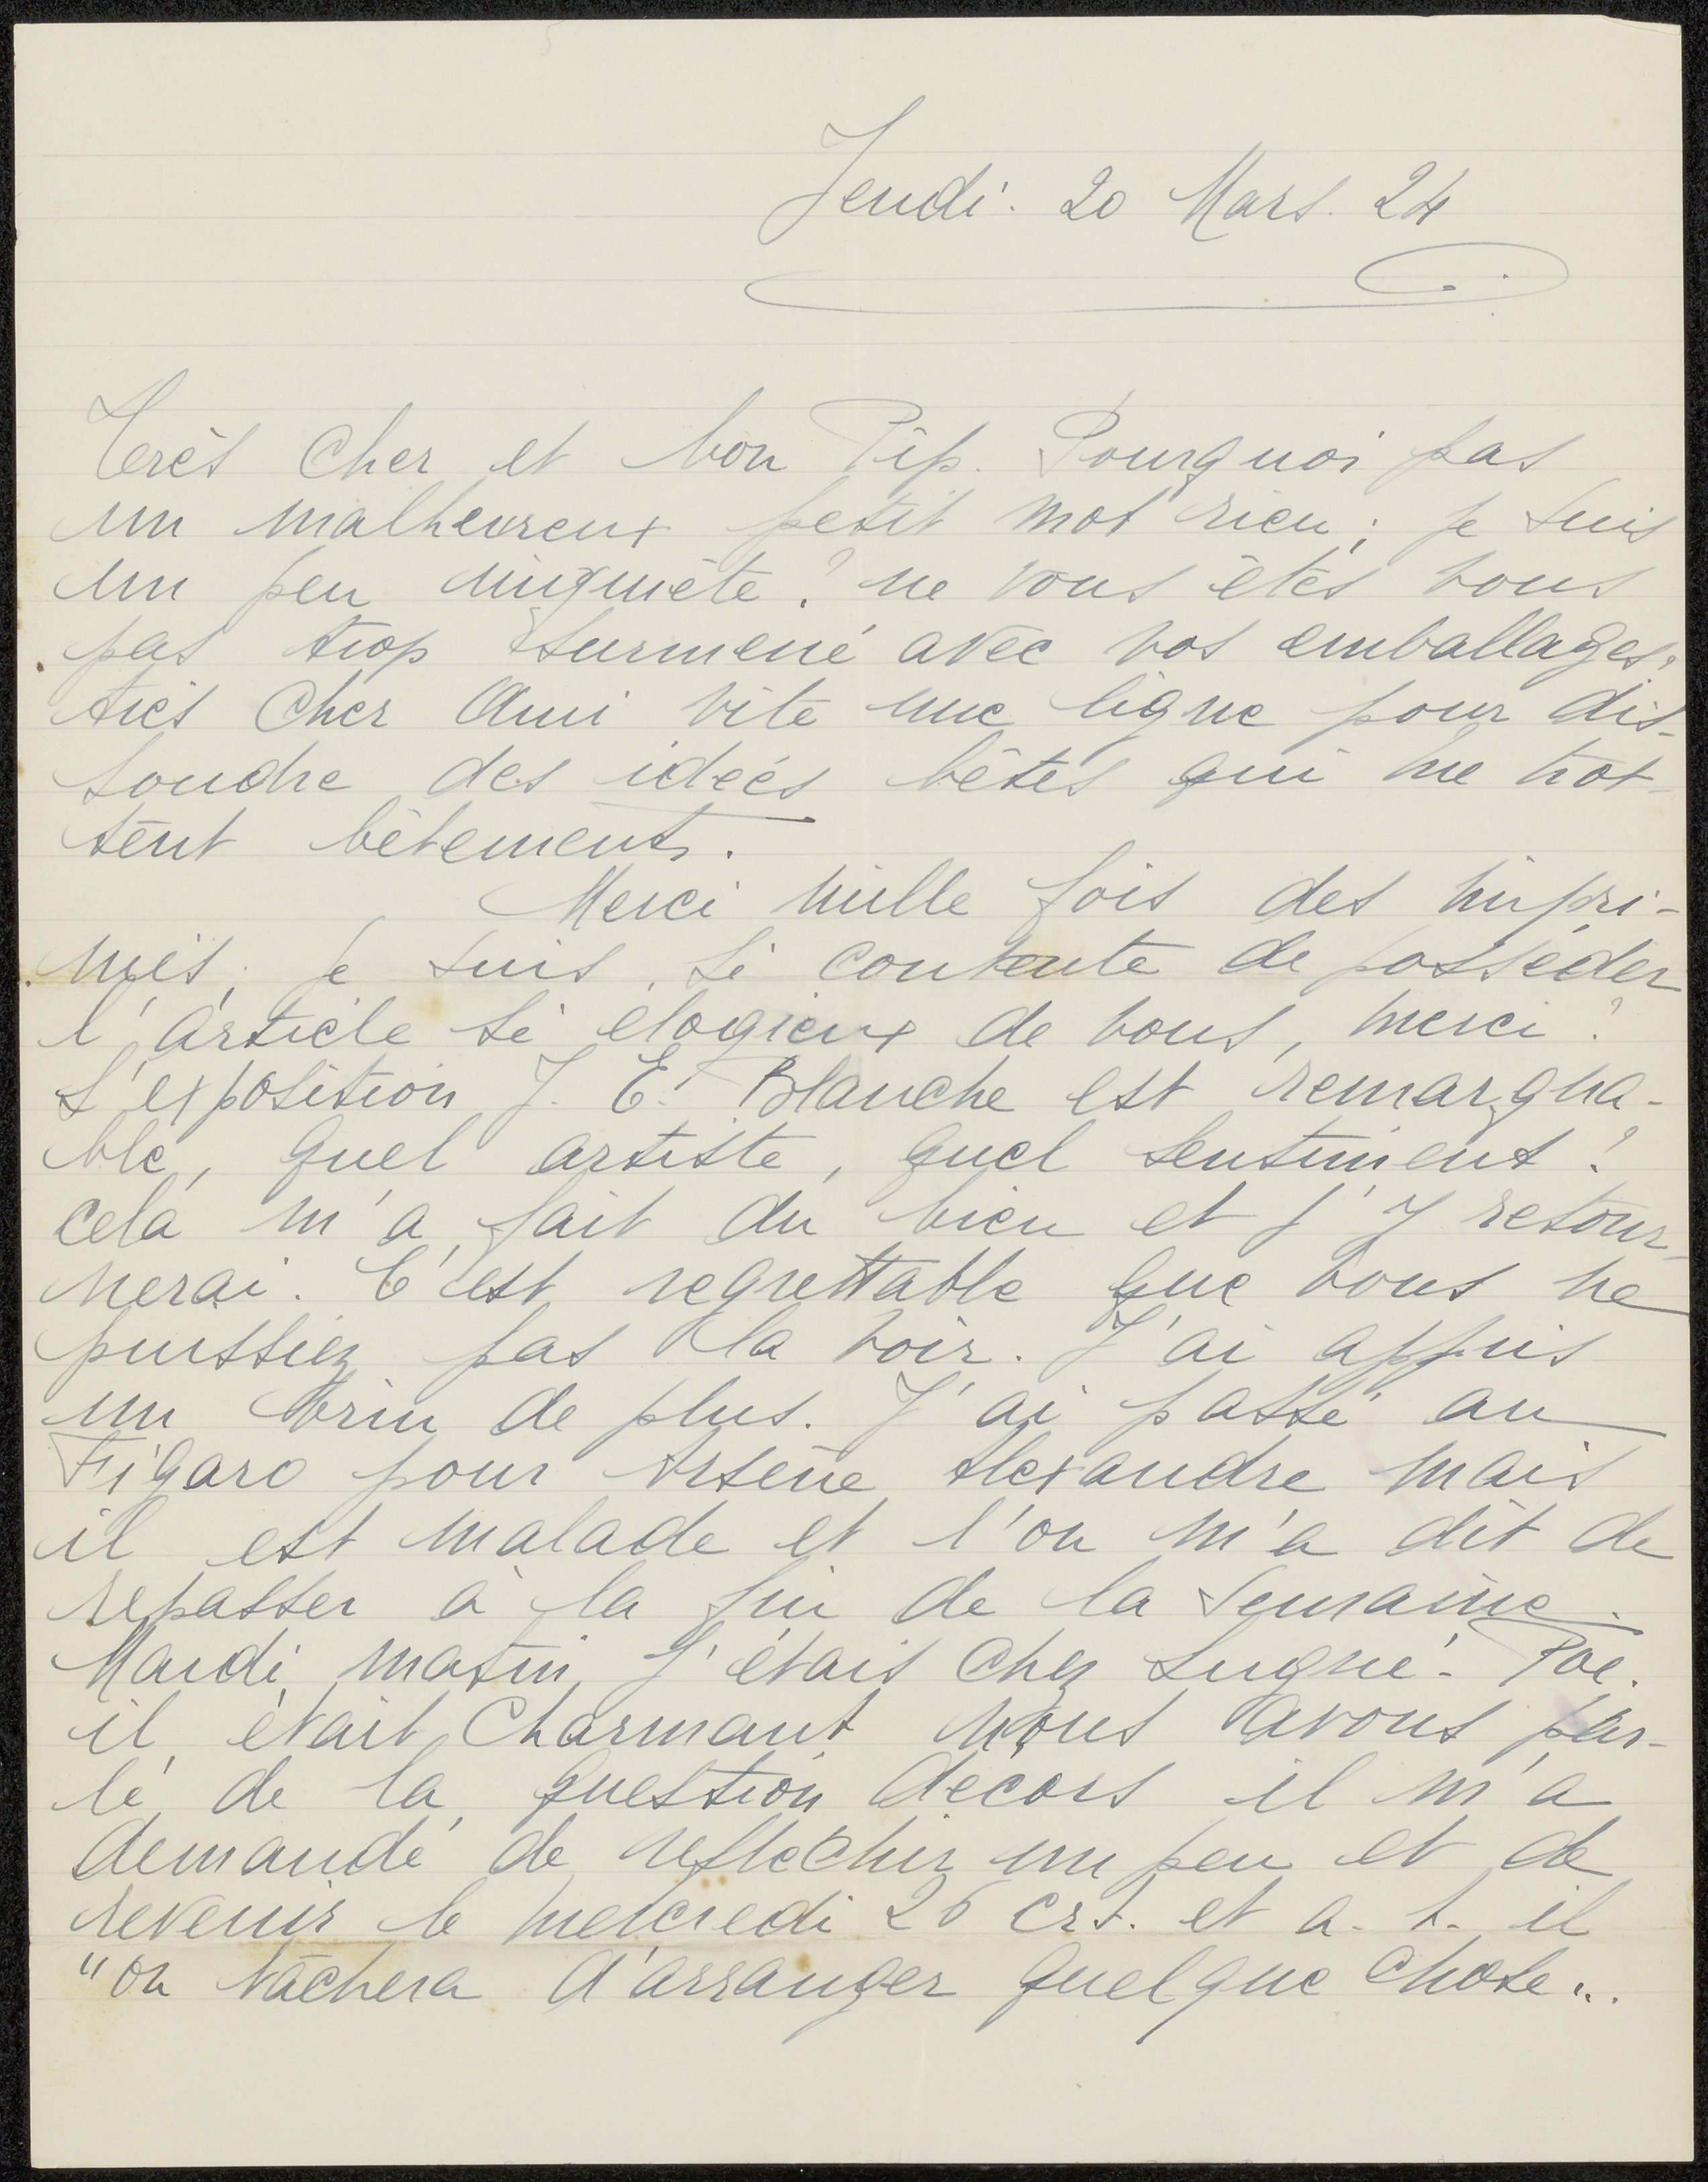 Jeudi. 20 Mars. 24
Très Cher et bon Pip. Pourquoi pas
un malheureux petit mot rien; je suis
un peu inquiète! ne vous êtes vous
pas trop surmené avec vos emballages,
très Cher Ami vite une ligne pour dis-
soudre des idées bêtes qui me trot-
tent bêtement.
Merci mille fois des impri-
més, je suis si contente de posséder
l'article si élogieux de vous, merci!
L'exposition J. E. Blanche est remarqua-
ble, quel artiste, quel sentiment!
cela m'a fait du bien et j'y retour-
nerai. C'est regrettable que vous ne
puissiez pas la voir. J'ai appris
un brin de plus. J'ai passé au
Figaro pour Arsène Alexandre mais
il est malade et l'on m'a dit de
repasser à la fin de la semaine.
Mardi matin j'étais chez Lugné-Poe.
il était Charmant nous avons par-
lé de la question décors il m'a
demandé de reflechir un peu et de
revenir le mercredi 26 crt. et a. t. il
"on tâchera d'arranger quelque chose"..